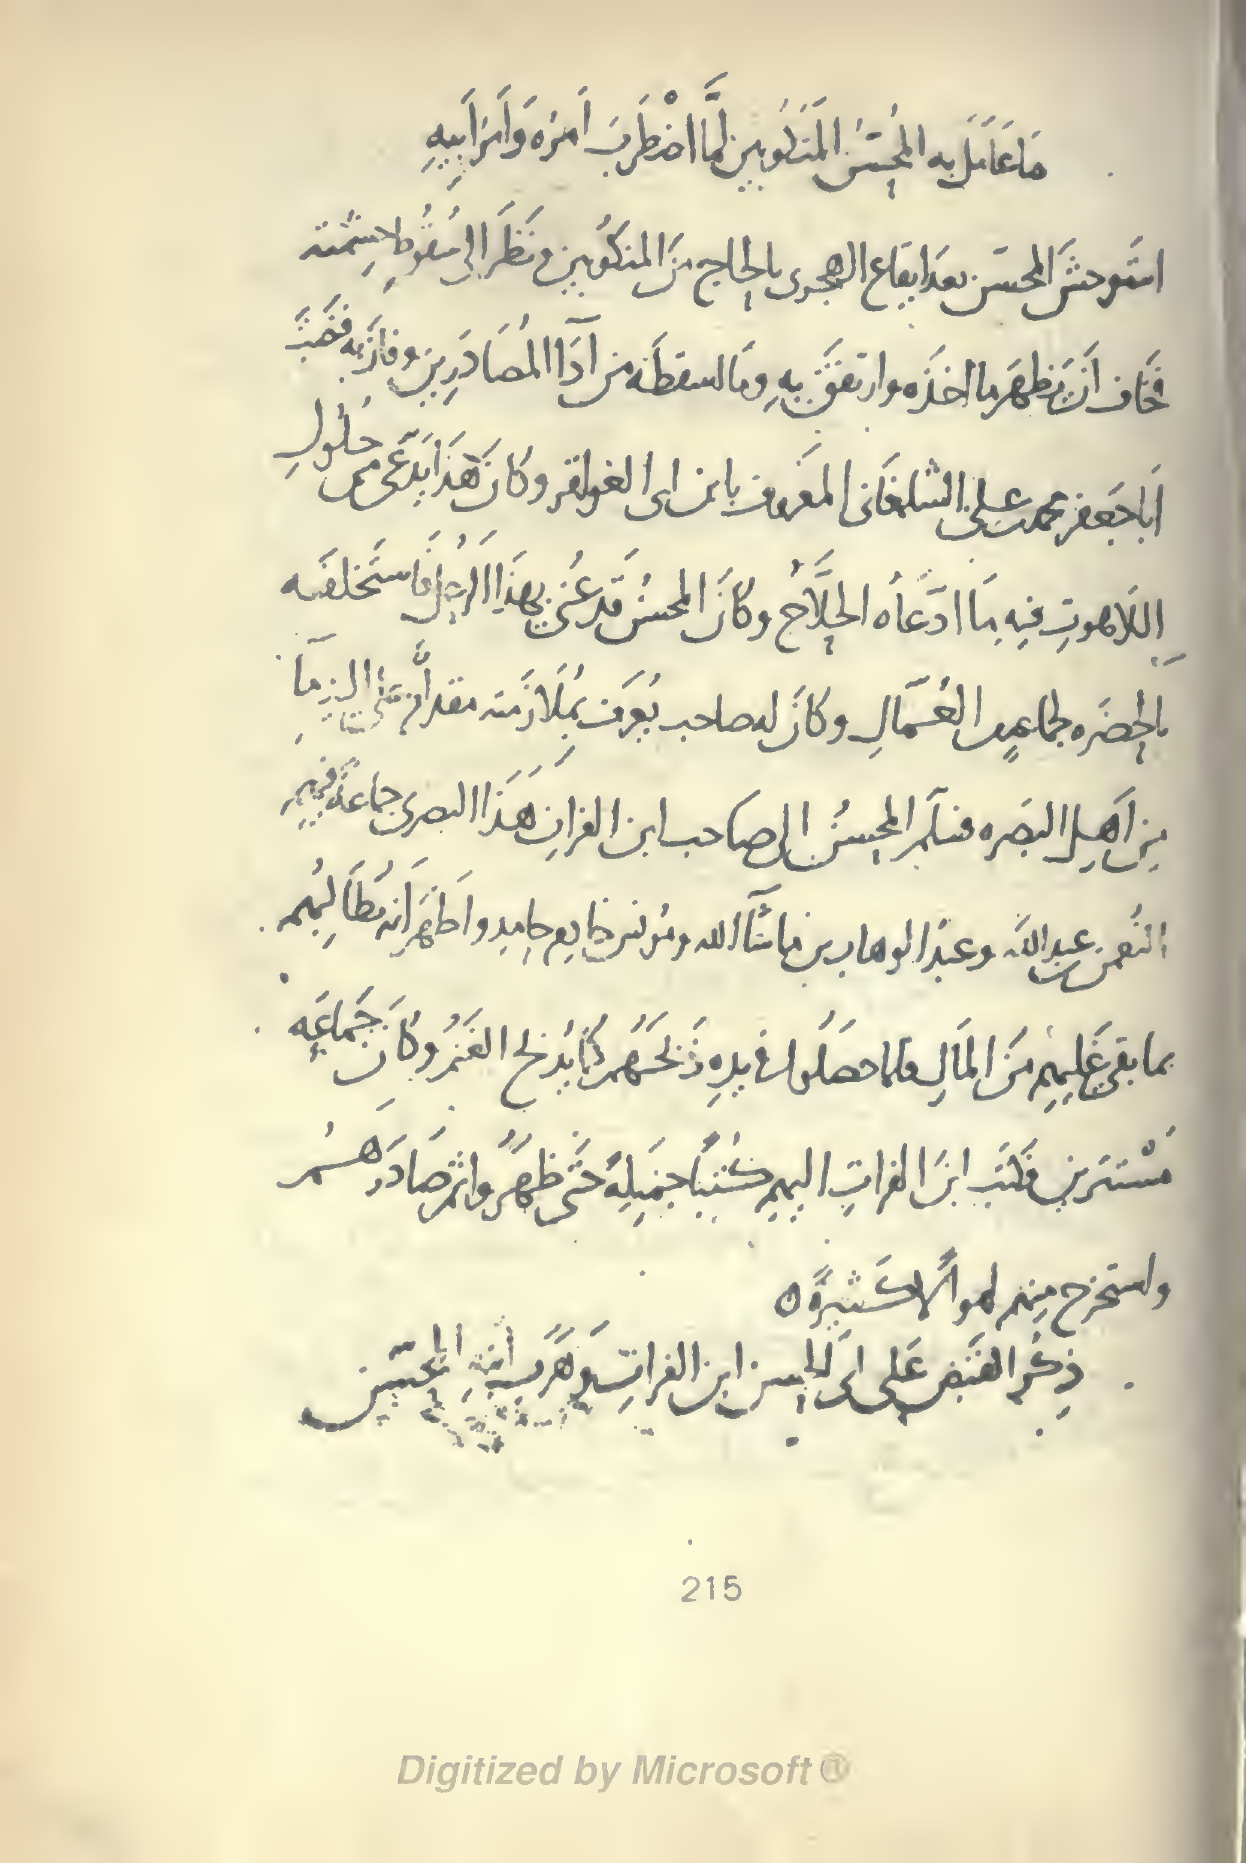 ما عامل به المُحسّن المنكوبين لمَّا اضْطَربَ اَمرُه وَاَمرُ اَبيهِ
استوحش المحسّن بعد ايقاع الهجرى بالحاج منَ المنكوبين ونَظَرَ الى سُقُوطِ حِشمته
فخاف اَن يَظهَر ما اخذه وارتفق بِهِ وما اسقطه من اَدَآ المُصَادَرين وفازَ به فنَصَبَ
اَبا جَعفر محمد بن على الشلمغانى المعروف بابن ابى العزاقر وكانَ هَذَا يَدّعى من حُلُولِ
اللَاهوتِ فيهِ مَا ادَّعَاُه الحلَّاج وكانَ المحسن قَد عُنى بهذا الرجُل فاستخلفه
بالحضره لجماعهٍ من العُمّالِ وكانَ له صاحب يُعرَف بمُلَازَمته مقدامٌ على الدِمآ
مِن اَهلِ البَصَره فسلّم المحسنُ الى صاحب ابن الفراتِ هَذَا البصرى جماعةً فيهم
النُعمن بن عبد الله وعبدُ الوهاب بن ما شَآ الله ومُونس خادِم حامِدٍ واَظهَرَ اَنه يُطَالبُهم
بما بقى عَلَيهِم منَ المَالِ فلما حصَلُوا فى يدِهِ ذَبَحَهُم كمَا يُذبَح الغَنَمُ وكانَ جَمَاعَه
مُسْتترين فكتَبَ ابنَ الفراتِ اليهِم كُتُباً جميلهً حَتّى ظهَرُوا ثم صَادَرهُم
واستخرج منهم اموالًا كَثيرةً ه
ذِكرُ القَبَض عَلى ابى الحسن ابن الفراتِ وَهَرَبِ اُبنهِ المحَسّنِ
215
Digitized by Microsoft ®